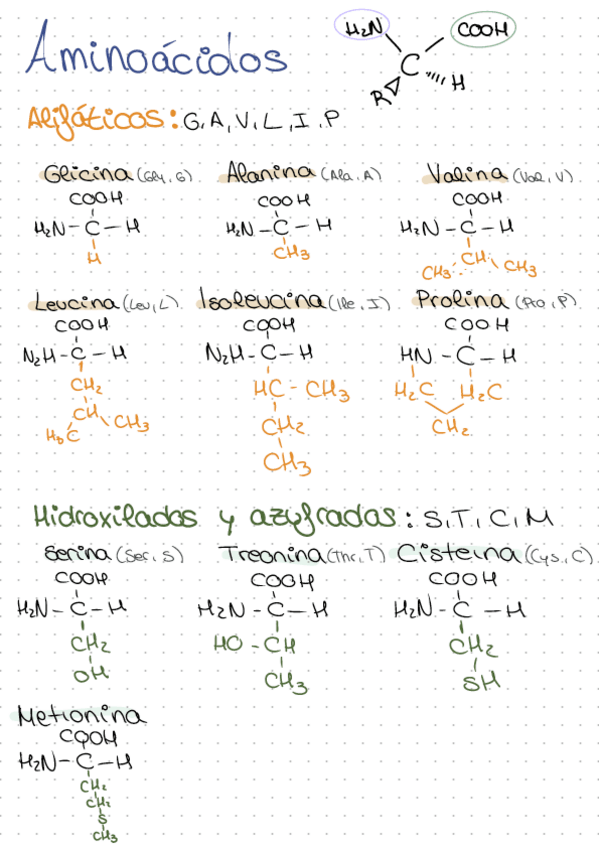 Aminoácidos
H₂N COOH
C
R H
Alifáticos: G, A, V, L, I, P
Glicina (Gly, G) Alanina (Ala, A) Valina (Val, V)
COOH COOH COOH
H₂N - C - H H₂N - C - H H₂N - C - H
H CH₃ CH
CH₃ CH₃
Leucina (Leu, L) Isoleucina (Ile, I) Prolina (Pro, P)
COOH COOH COOH
N₂H - C - H N₂H - C - H HN - C - H
CH₂ HC - CH₃ H₂C H₂C
CH CH₃ CH₂ CH₂
H₃C CH₃
Hidroxilados y azufrados: S, T, C, M
Serina (Ser, S) Treonina (Thr, T) Cisteina (Cys, C)
COOH COOH COOH
H₂N - C - H H₂N - C - H H₂N - C - H
CH₂ HO - CH CH₂
OH CH₃ SH
Metionina
COOH
H₂N - C - H
CH₂
S
CH₃